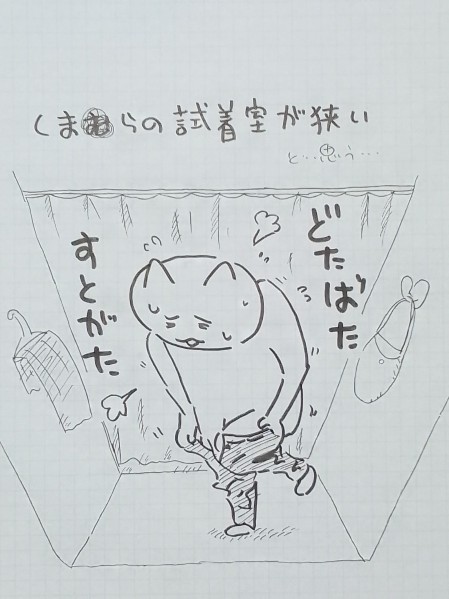 くまむらの試着室が狭い
と…思う…
どたばた
すとがた